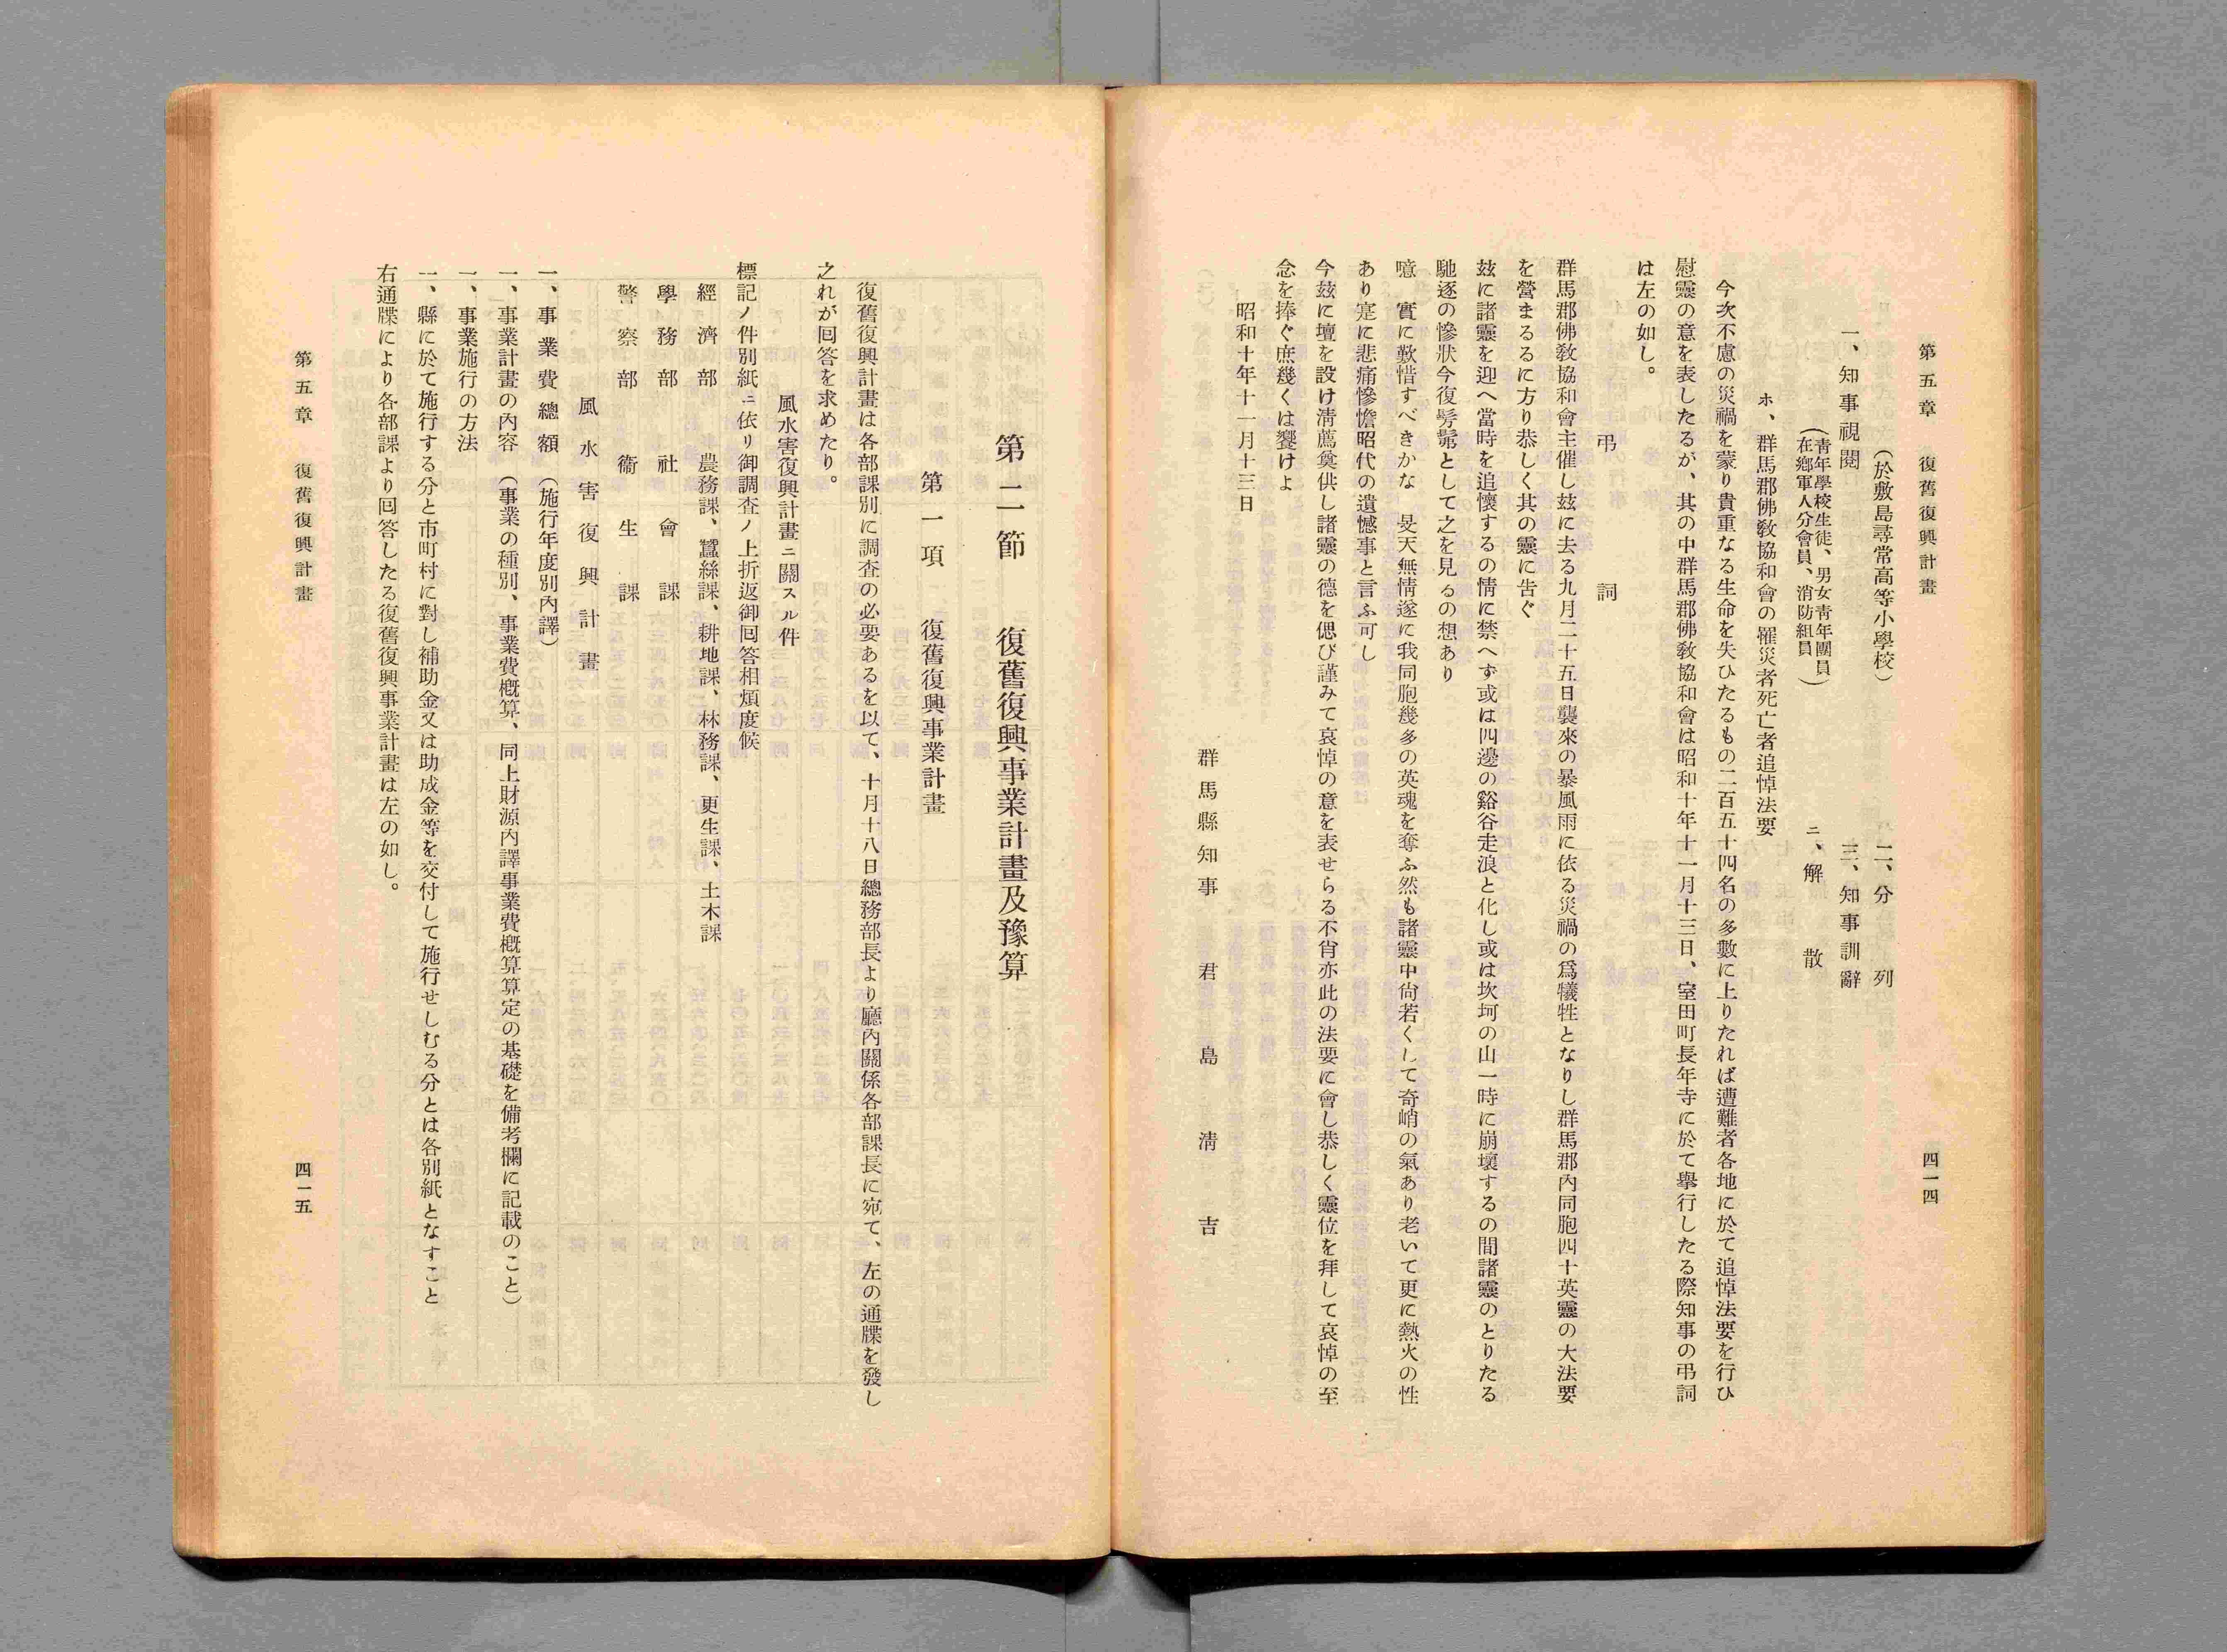 第五章　復舊復興計畫
四一四
（於敷島尋常高等小學校）
二、分　列
一、知事視閱
（青年學校生徒、男女青年團員
在鄕軍人分會員、消防組員）
三、知事訓辭
ニ、解　散
ホ、群馬郡佛敎協和會の罹災者死亡者追悼法要
今次不慮の災禍を蒙り貴重なる生命を失ひたるもの二百五十四名の多數に上りたれば遭難者各地に於て追悼法要を行ひ
慰靈の意を表したるが、其の中群馬郡佛敎協和會は昭和十年十一月十三日、室田町長年寺に於て擧行したる際知事の弔詞
は左の如し。
弔　詞
群馬郡佛敎協和會主催し玆に去る九月二十五日襲來の暴風雨に依る災禍の爲犧牲となりし群馬郡內同胞四十英靈の大法要
を營まるるに方り恭しく其の靈に告ぐ
玆に諸靈を迎へ當時を追懷するの情に禁へず或は四邊の谿谷走浪と化し或は坎坷の山一時に崩壞するの間諸靈のとりたる
馳逐の慘狀今復髣髴として之を見るの想あり
噫　實に歎惜すべきかな　旻天無情遂に我同胞幾多の英魂を奪ふ然も諸靈中尙若くして奇峭の氣あり老いて更に熱火の性
あり寔に悲痛慘憺昭代の遺憾事と言ふ可し
今玆に壇を設け淸薦奠供し諸靈の德を偲び謹みて哀悼の意を表せらる不肖亦此の法要に會し恭しく靈位を拜して哀悼の至
念を捧ぐ庶幾くは饗けよ
昭和十年十一月十三日
群馬縣知事　君島淸吉
第二節　復舊復興事業計畫及豫算
第一項　復舊復興事業計畫
復舊復興計畫は各部課別に調査の必要あるを以て、十月十八日總務部長より廳內關係各部課長に宛て、左の通牒を發し
之れが回答を求めたり。
風水害復興計畫ニ關スル件
標記ノ件別紙ニ依リ御調査ノ上折返御回答相煩度候
經濟部　農務課、蠶絲課、耕地課、林務課、更生課、土木課
學務部　社會課
警察部　衞生課
風水害復興計畫
一、事業費總額（施行年度別內譯）
一、事業計畫の內容　（事業の種別、事業費槪算、同上財源內譯事業費槪算算定の基礎を備考欄に記載のこと）
一、事業施行の方法
一、縣に於て施行する分と市町村に對し補助金又は助成金等を交付して施行せしむる分とは各別紙となすこと
右通牒により各部課より回答したる復舊復興事業計畫は左の如し。
第五章　復舊復興計畫
四一五